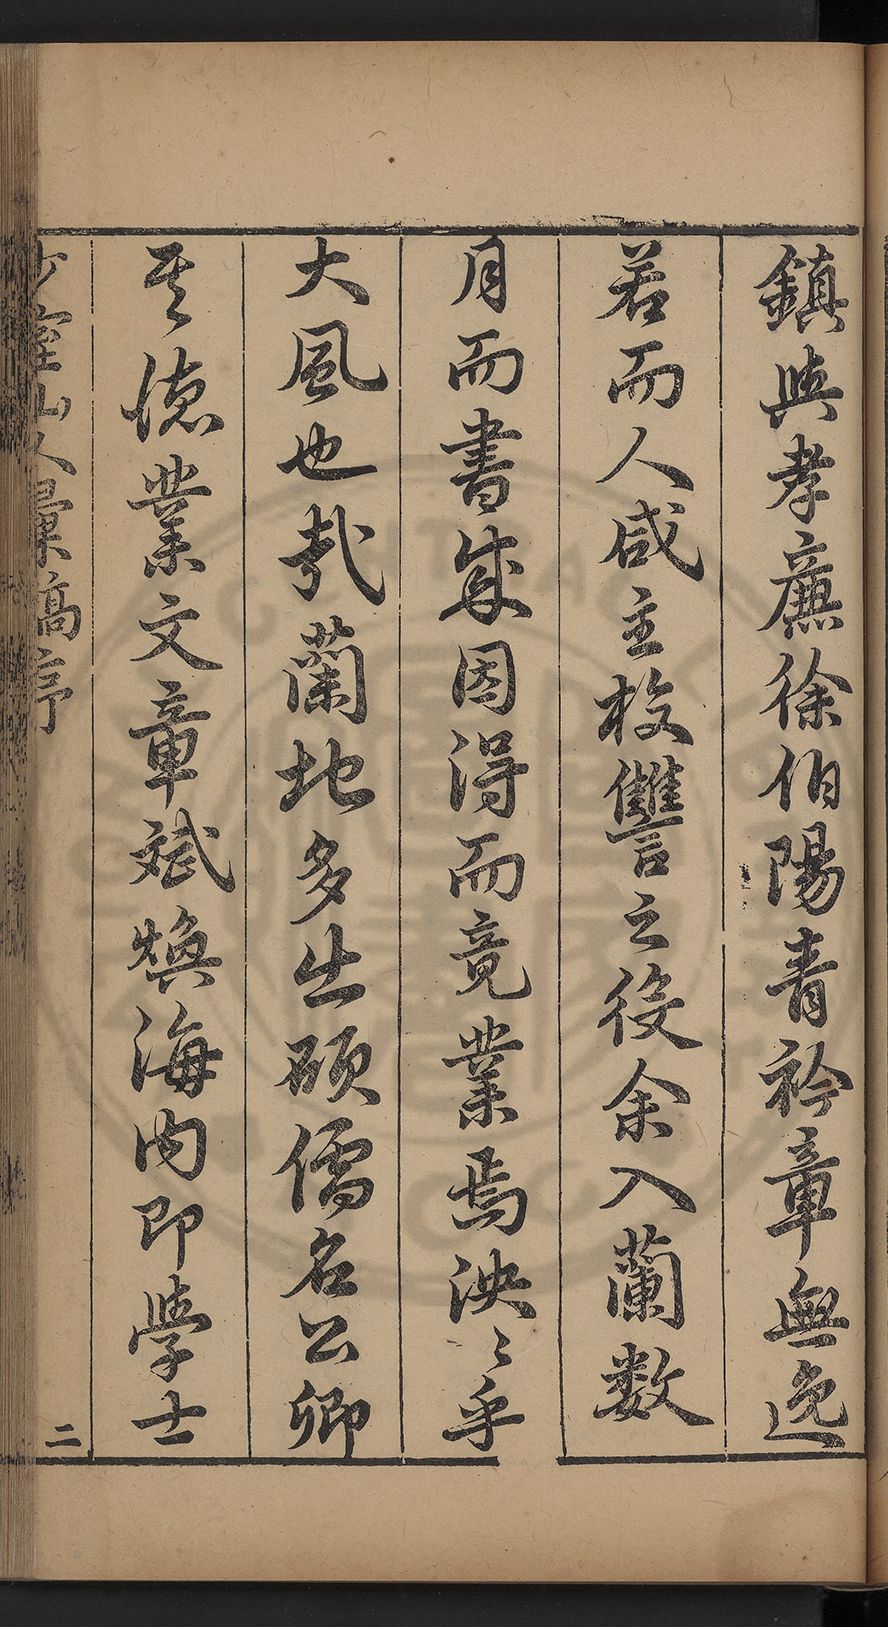 鎮與孝廉徐伯陽青衿章無逸
若而人咸主校讐之役余入蘭數
月而書成因得而竟業焉泱〻乎
大風也哉蘭地多出碩儒名公卿
其德業文章斌煥海內即學士
少室山人彙稿序
二